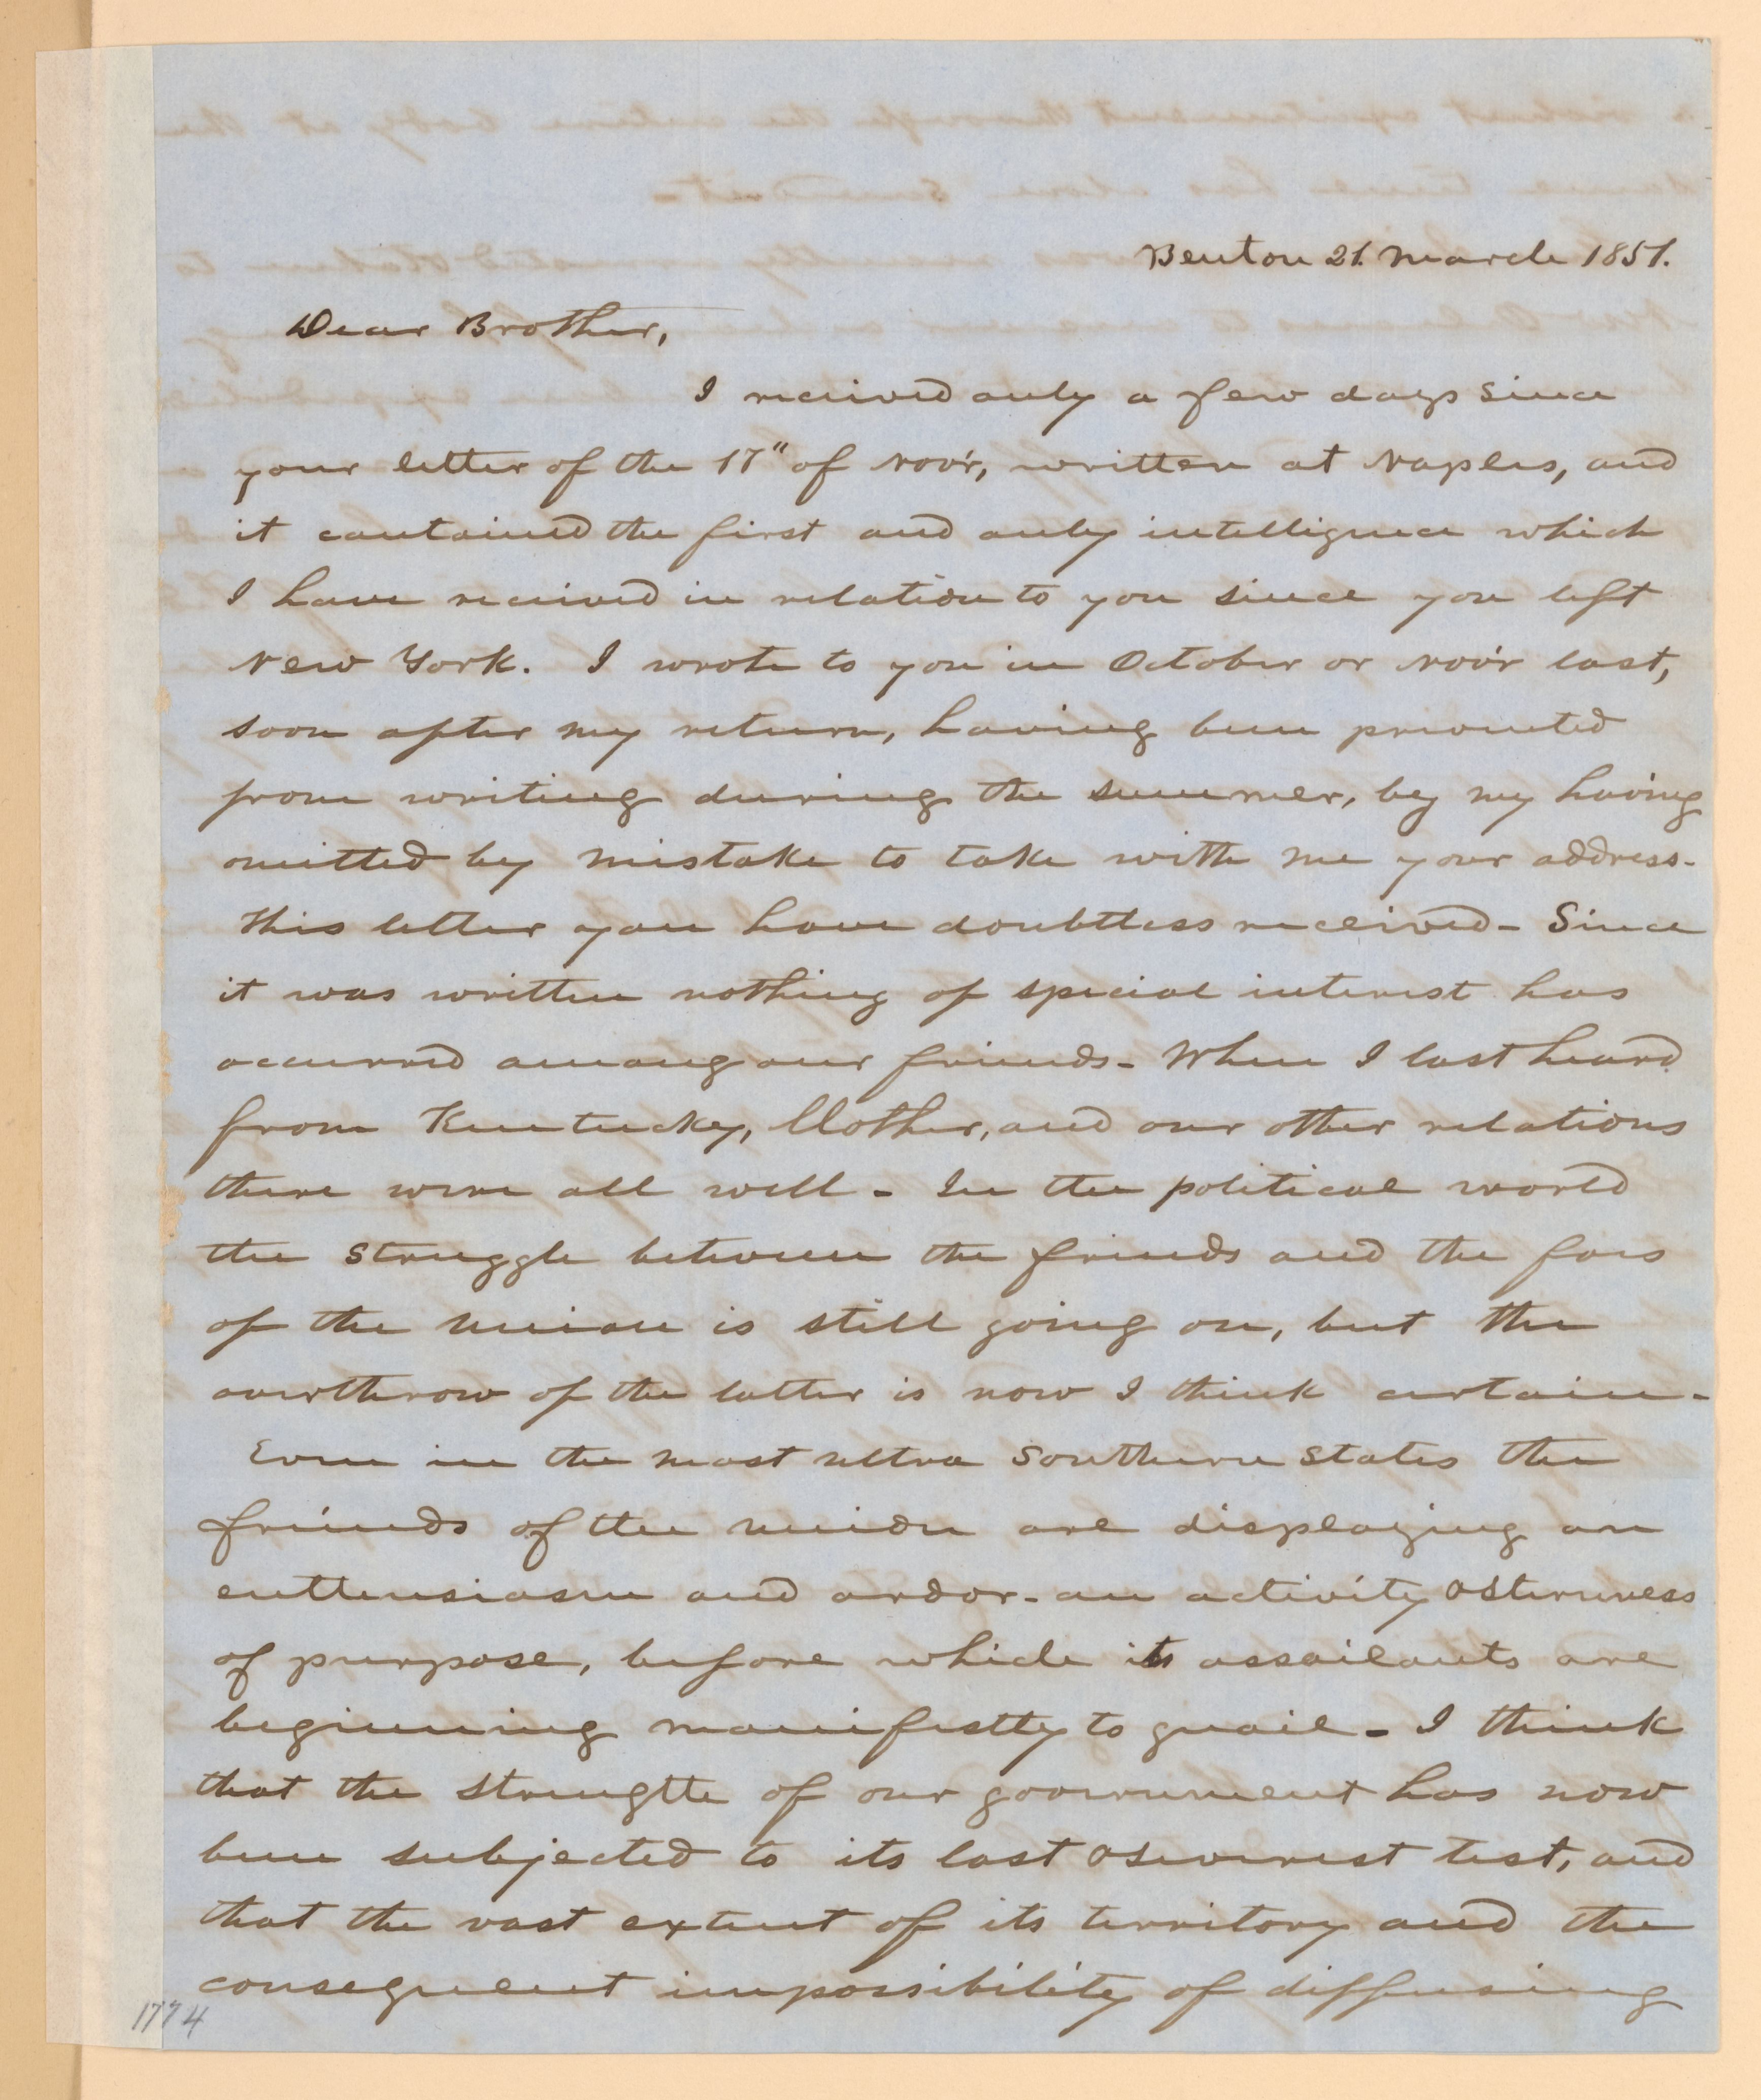 Benton 21. March 1851.
Dear Brother,
I received only a few days since
your letter of the 17" of Nov'r, written at Naples, and
it contained the first and only intelligence which
I have received in relation to you since you left
New York. I wrote to you in October or Nov'r last,
soon after my return, having been prevented
from writing during the summer, by my having
omitted by mistake to take with me your address-
This letter you have doubtless received- Since
it was written nothing of special interest has
occurred among our friends- When I last heard
from Kentucky, Mother, and our other relations
there were all well- In the political world
the struggle between the friends and the foes
of the Union is still going on, but the
overthrow of the latter is now I think certain-
Even in the most ultra Southern States the
friends of the Union are displaying an
enthusiasm and ardor- an activity & sternness
of purpose, before which its assailants are
beginning manifestly to quail- I think
that the strength of our government has now
been subjected to its last & severest test, and
that the vast extent of its territory and the
consequent impossibility of diffusing
1774